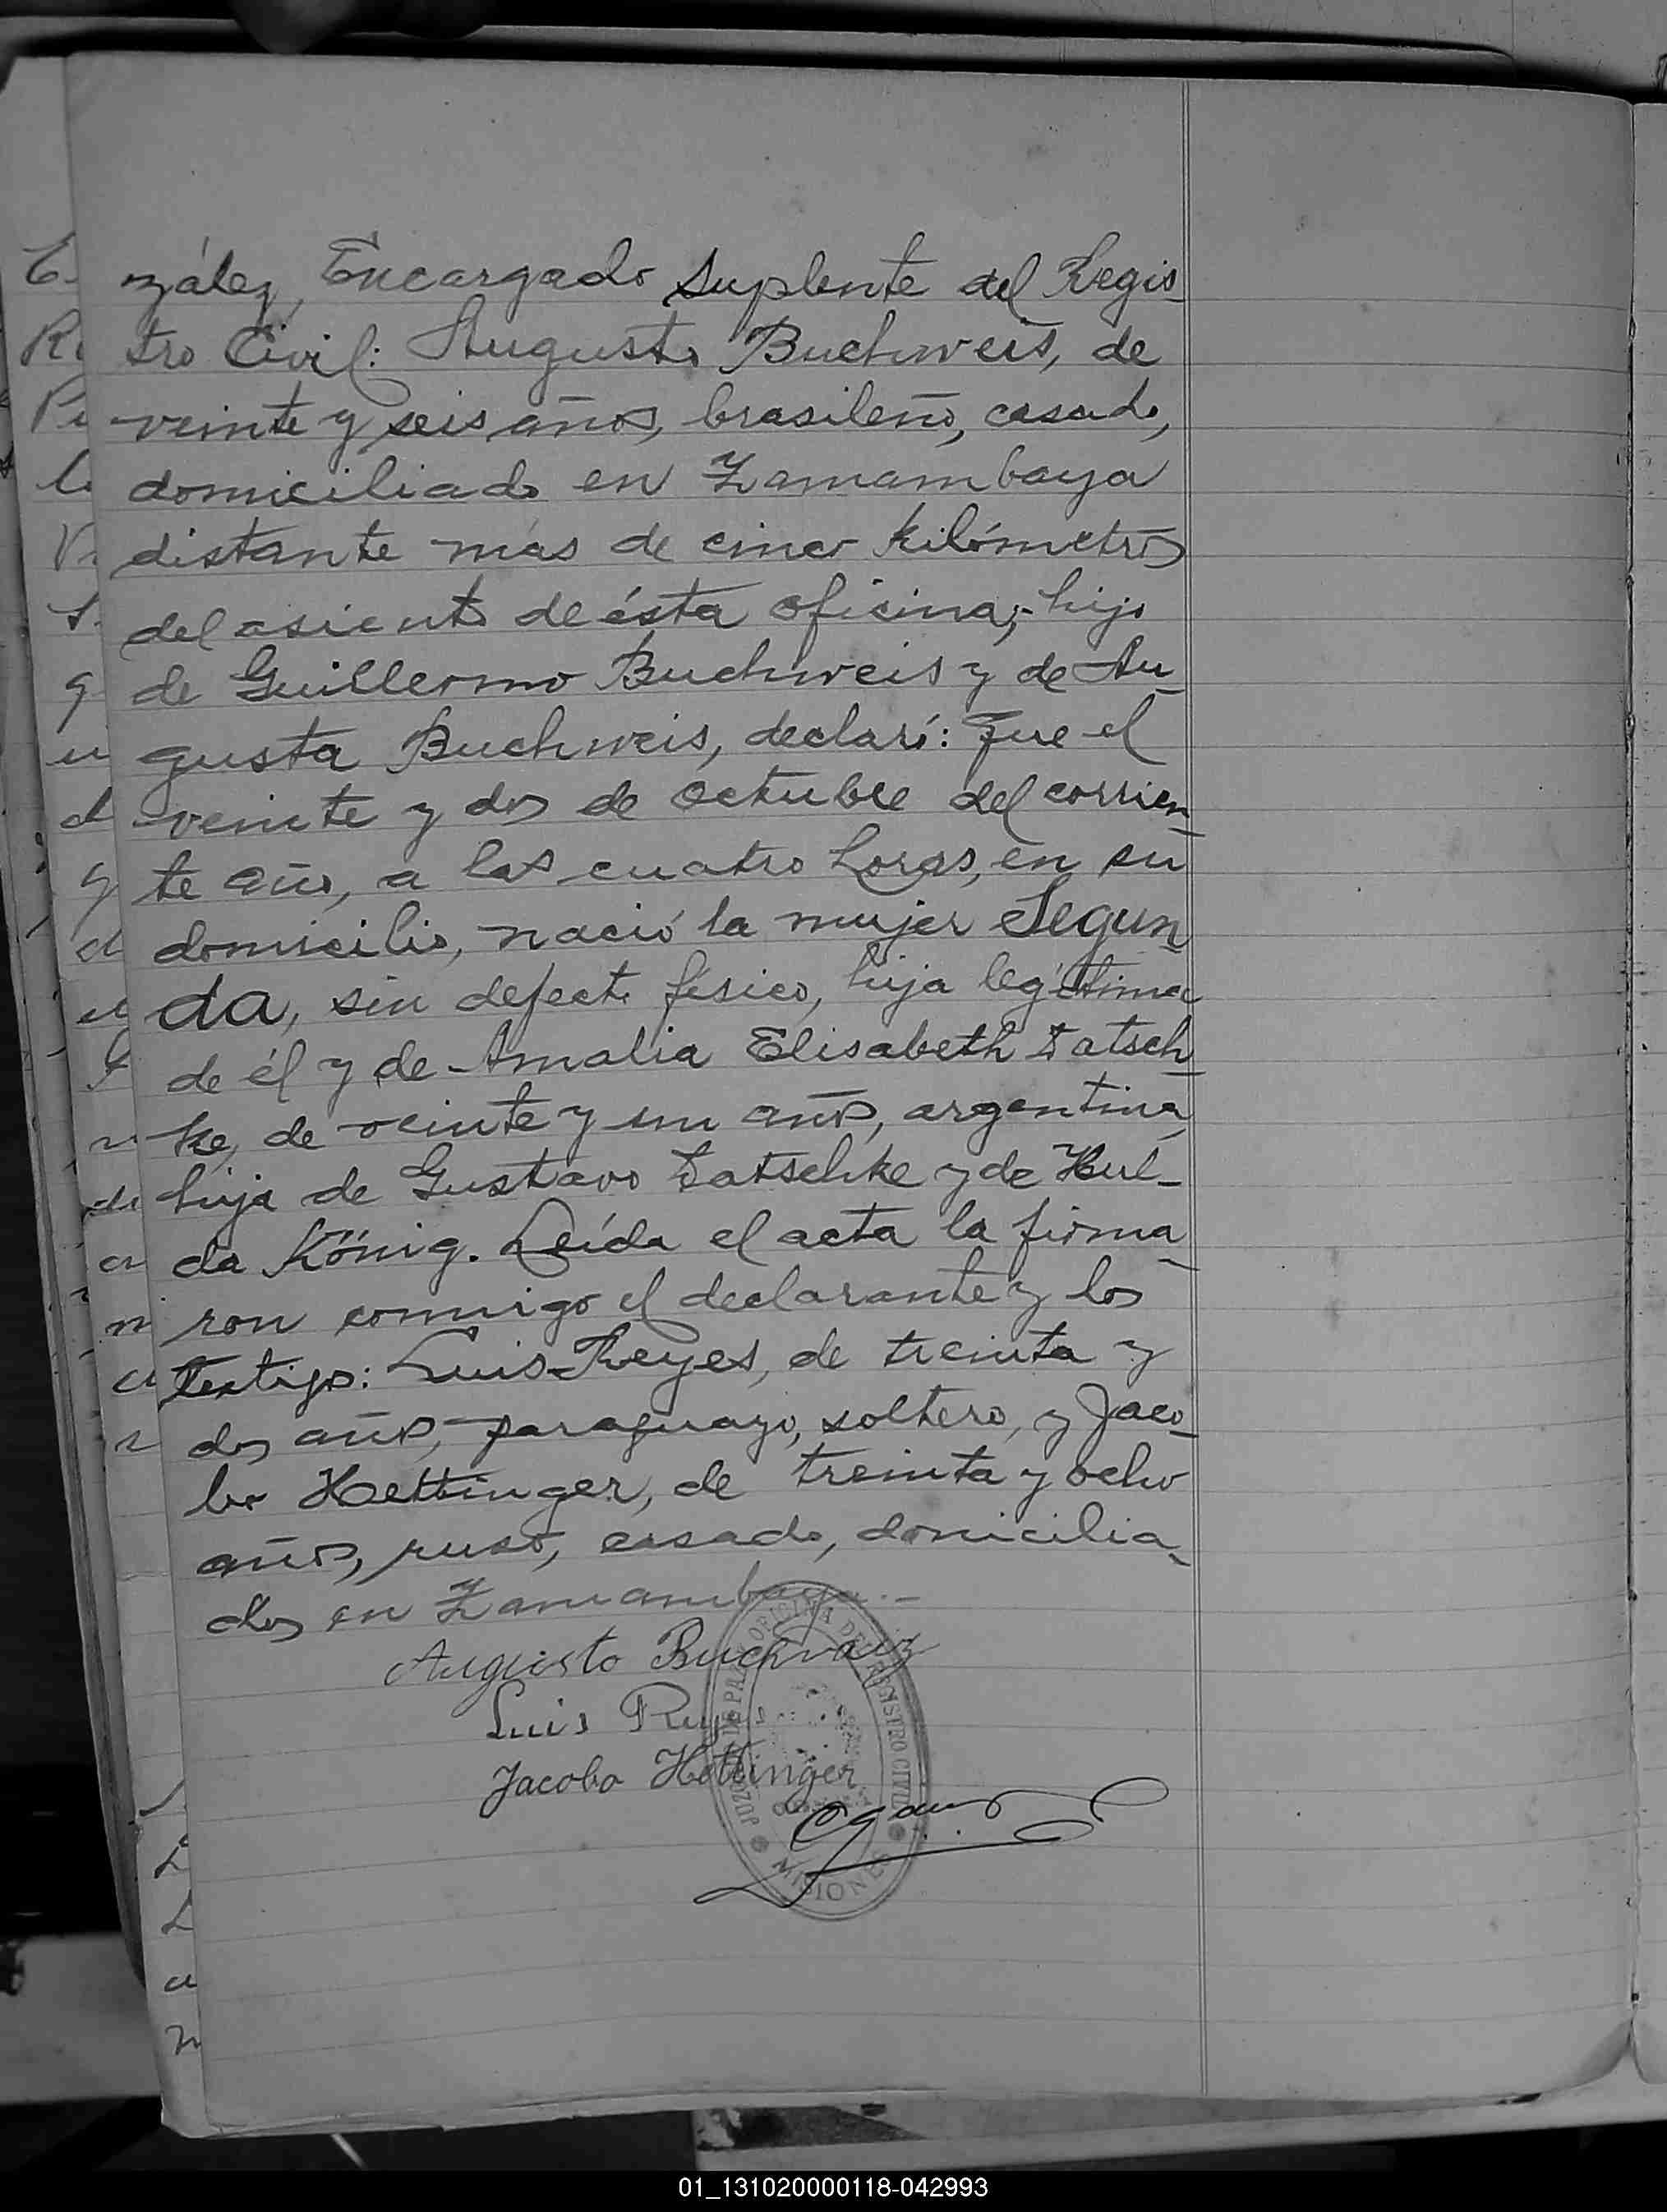 zález, Encargado Suplente del Regis-
tro Civil: Augusto Buchweis, de
veinte y seis años, brasileño, casado,
domiciliado en Zamambaya
distante más de cinco kilómetros
del asiento de ésta oficina,- hijo
de Guillermo Buchweis y de Au-
gusta Buchweis, declaró: Que el
veinte y dos de octubre del corrien-
te año, a las cuatro horas, en su
domicilio, nació la mujer Segun-
da, sin defecto físico, hija legítima
de él y de Amalia Elisabeth Tatsch-
ke, de veinte y un años, argentina,
hija de Gustavo Tatschke y de Hul-
da König. Leída el acta la firma-
ron conmigo el declarante y los
testigos: Luis Reyes, de treinta y
dos años, paraguayo, soltero, y Jaco-
bo Hettinger, de treinta y ocho
años, ruso, casado, domicilia-
dos en Zamambaya.-
Augusto Buchvaiz
Luis Reyes
Jacobo Hettinger
JUZGADO DE PAZ Y OFICINA DEL REGISTRO CIVIL
MISIONES
01_131020000118-042993